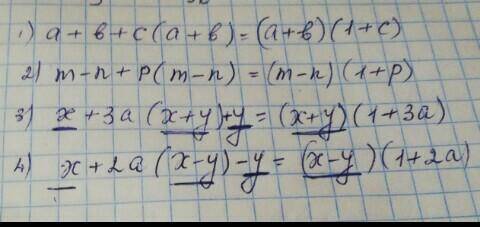 1) a + b + c (a + b) = (a+b) (1+c)
2) m - n + p (m - n) = (m - n) (1+p)
3) x + 3a (x+y)+y = (x+y) (1+3a)
4) x + 2a (x-y) - y = (x-y) (1+2a)